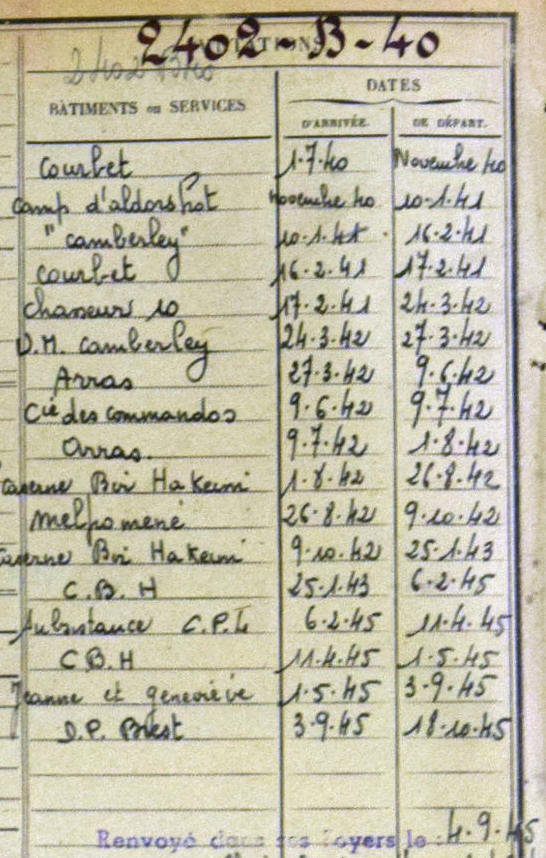 2402-B-40
2402 B 40
DATES
BÂTIMENTS ou SERVICES
D'ARRIVÉE. DE DÉPART.
Courbet 1.7.40 Novembre 40
Camp d'aldorshot novembre 40 10.1.41
"camberley" 10.1.41 16.2.41
Courbet 16.2.41 17.2.41
Chasseur 10 17.2.41 24.3.42
D.M. Camberley 24.3.42 27.3.42
Arras 27.3.42 9.6.42
Cie des commandos 9.6.42 9.7.42
Arras. 9.7.42 1.8.42
Caserne Bir Hakeim 1.8.42 26.8.42
Melpomène 26.8.42 9.10.42
Caserne Bir Hakeim 9.10.42 25.1.43
C.B.H 25.1.43 6.2.45
Subsistance 6.2.45 11.4.45
C B.H 11.4.45 1.5.45
Jeanne et geneviève 1.5.45 3.9.45
D.P. Brest 3.9.45 18.10.45
Renvoyé dans ses foyers le : 4.9.45